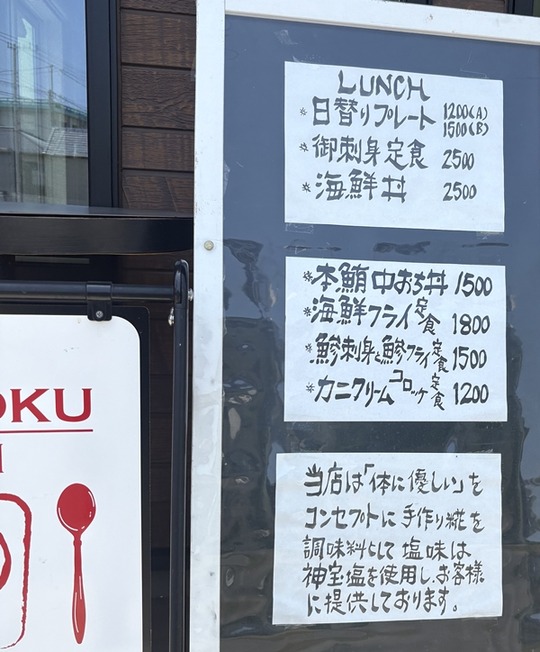 LUNCH
*日替りプレート 1200(A)
1500(B)
*御刺身定食 2500
*海鮮丼 2500
*本鮪中おち丼 1500
*海鮮フライ定食 1800
*鯵刺身と鯵フライ定食 1500
*カニクリームコロッケ定食 1200
当店は「体に優しい」を
コンセプトに手作り糀を
調味料として塩味は
神宝塩を使用し、お客様
に提供しております。
OKU